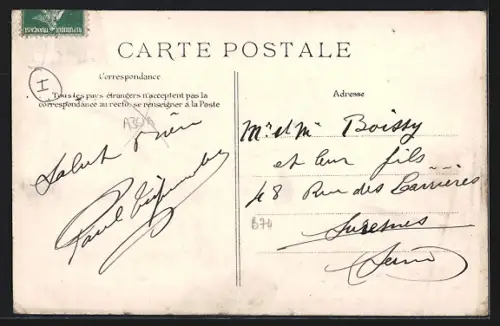 REPUBLIQUE FRANÇAISE
CARTE POSTALE
Correspondance
Tous les pays étrangers n'acceptent pas la
correspondance au recto, se renseigner à la Poste
H
A304
Salut
Paul
Adresse
Mr et Me Boissy
et leur fils
48 Rue des Carrières
Suresnes
Seine
B74